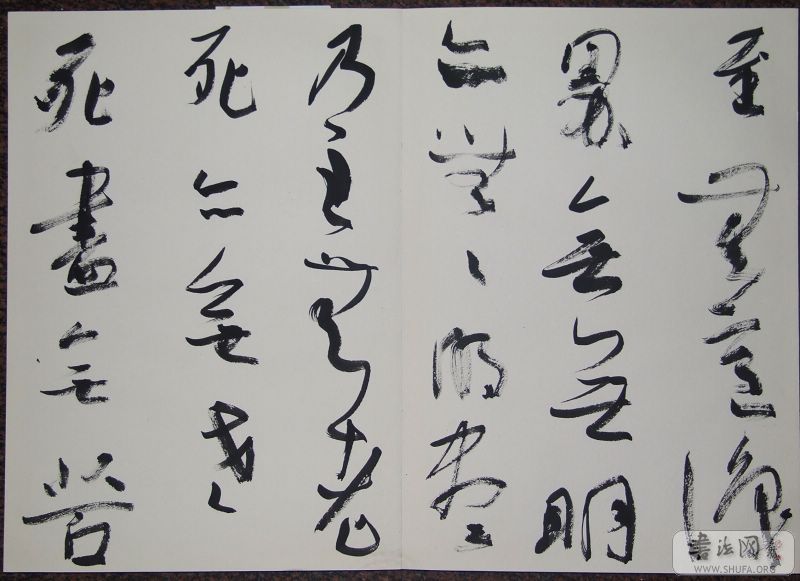 至無意識
界無無明
亦無〻明盡
乃至無老
死亦無老
死盡無苦
書法网
WWW.SHUFA.ORG